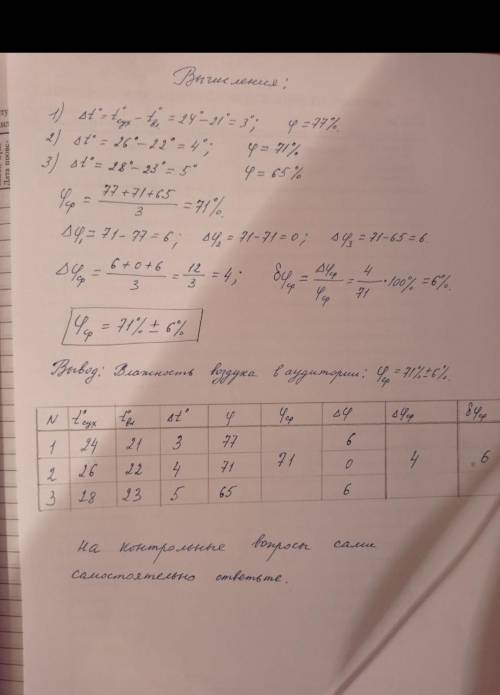 Вычисления:
1) Δt° = t°сух – t°вл = 24° – 21° = 3°; φ = 77%.
2) Δt° = 26° – 22° = 4°; φ = 71%
3) Δt° = 28° – 23° = 5° φ = 65%
φср = (77 + 71 + 65)/3 = 71%.
Δφ₁ = 71 - 77 = 6; Δφ₂ = 71 - 71 = 0; Δφ₃ = 71 - 65 = 6.
Δφср = (6 + 0 + 6)/3 = 12/3 = 4; δφср = Δφср/φср = 4/71 · 100% = 6%.
φср = 71% ± 6%
Вывод: Влажность воздуха в аудитории: φср = 71% ± 6%.
N t°сух t°вл Δt° φ φср Δφ Δφср δφср
1 24 21 3 77 6
2 26 22 4 71 71 0 4 6
3 28 23 5 65 6
На контрольные вопросы сами
самостоятельно ответьте.